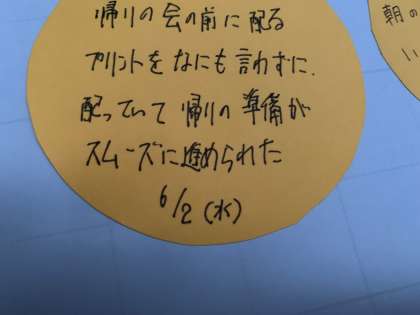 帰りの会の前に配る
プリントをなにも言わずに、
配っていて帰りの準備が
スムーズに進められた
6/2(水)
朝の
い